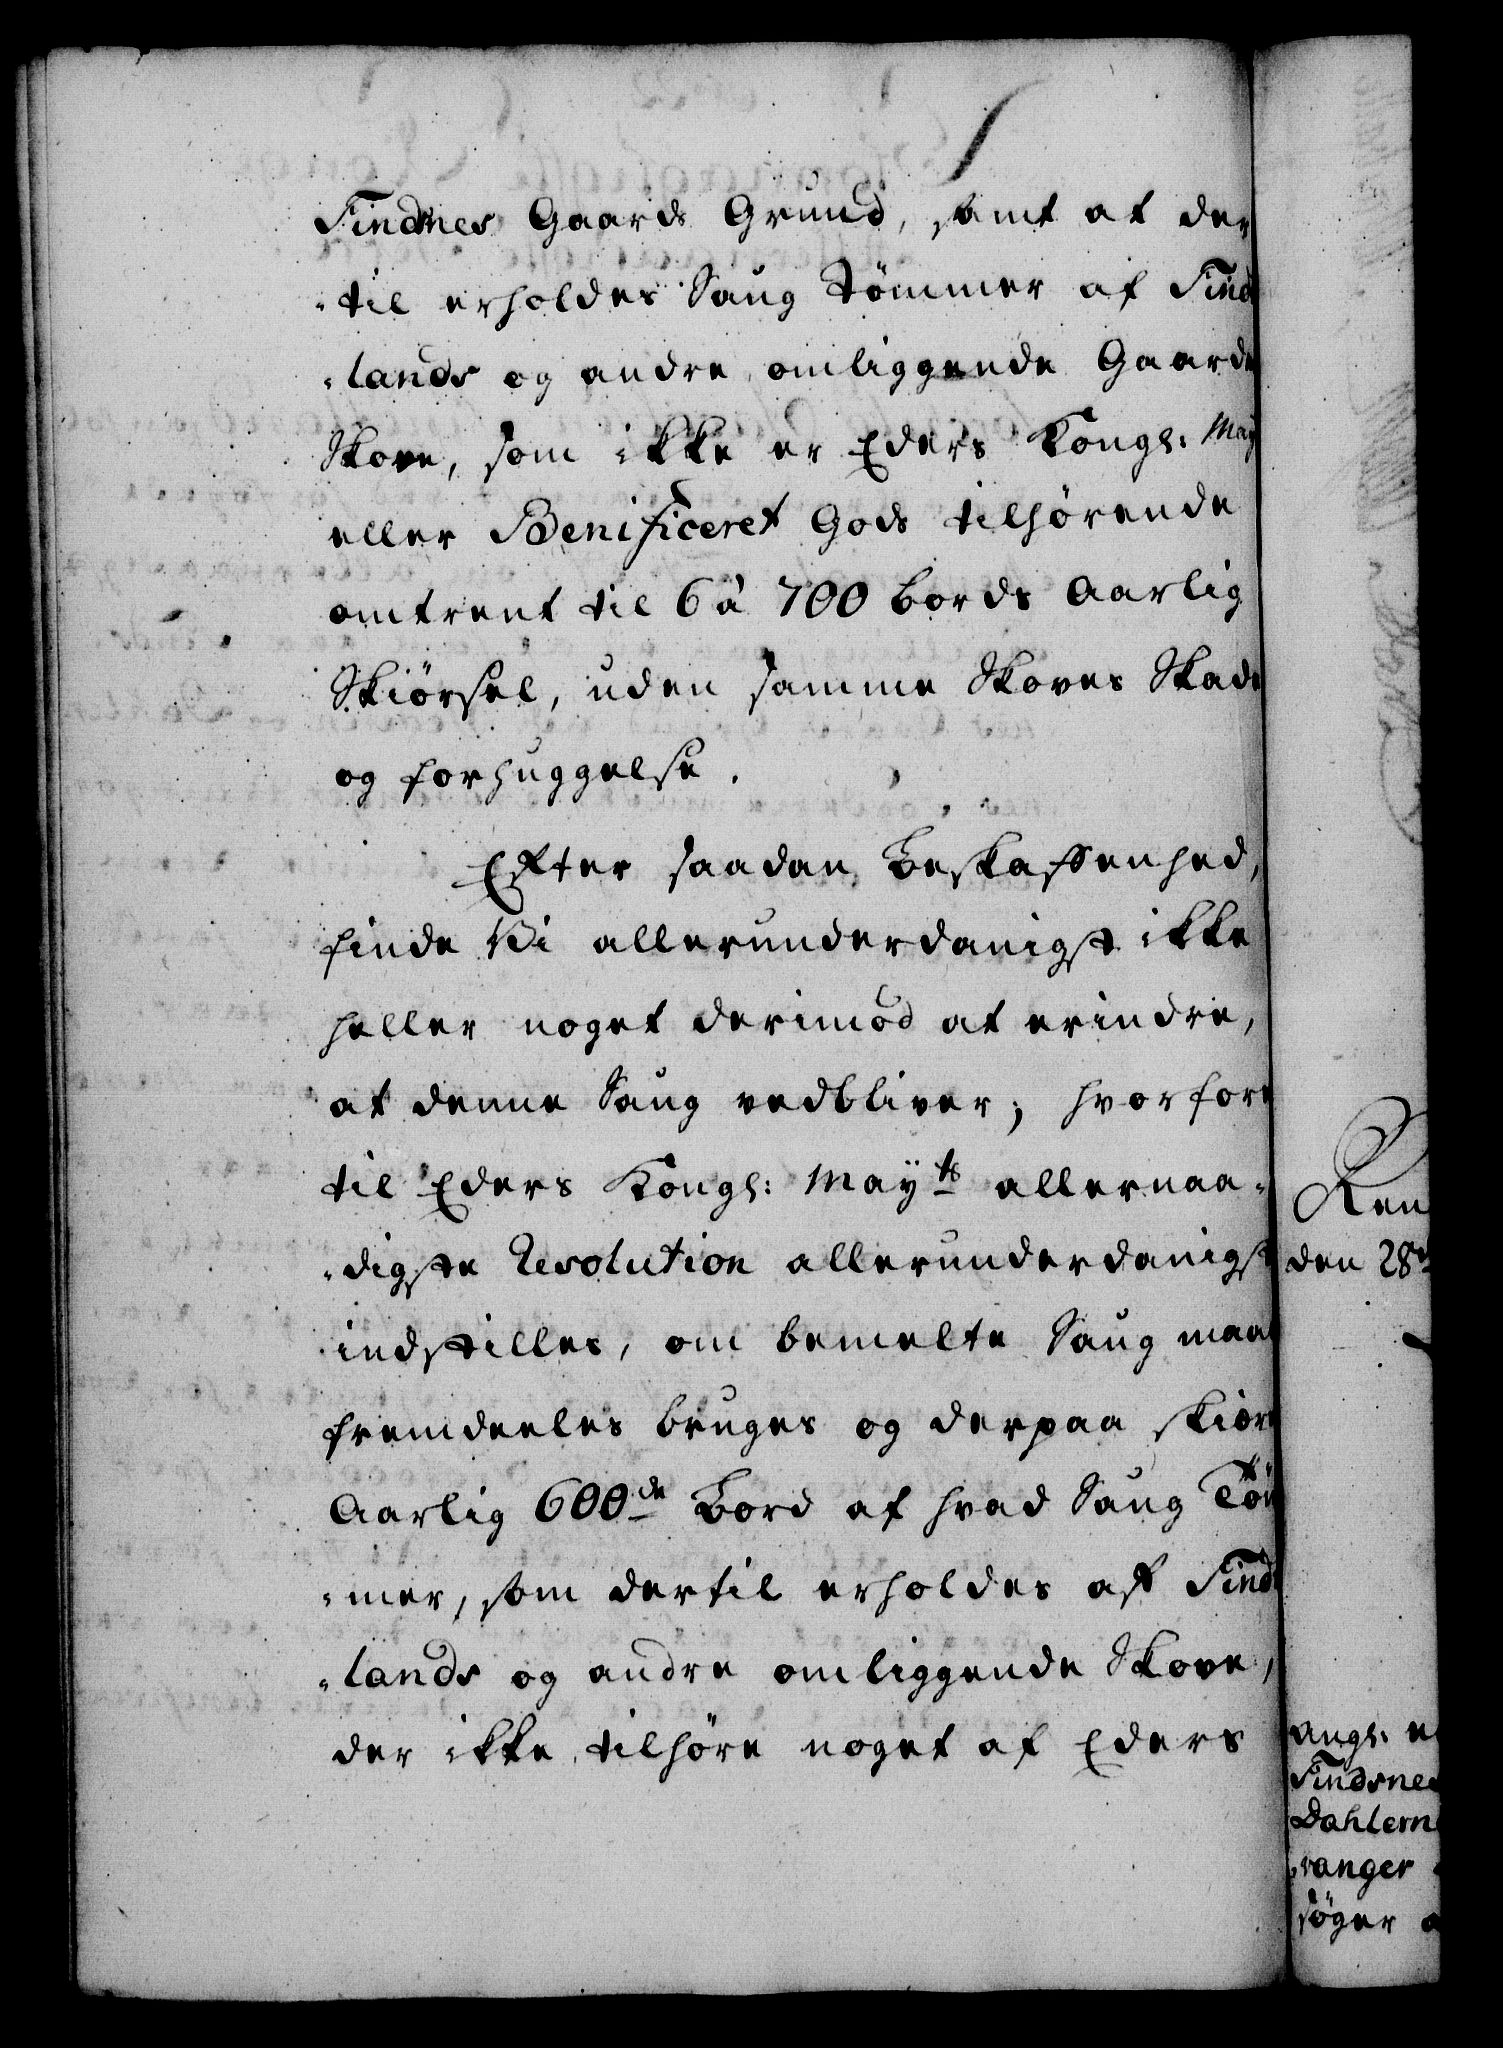 Findnes Gaards Grund, samt at der
-til erholdes Saug Tømmer af Find
-lands og andre omliggende Gaarde
Skove, som ikke er Eders Kongl: May
eller Benificeret Gods tilhørende
omtrent til 6 à 700 bords Aarlig
Skiørsel, uden samme Skoves Skade
og forhuggelse.
Efter saadan Beskaffenhed,
finde Vi allerunderdanigst ikke
heller noget derimod at erindre,
at denne Saug vedbliver; hvorfore
til Eders Kongl: Mayts allernaa-
-digste Resolution allerunderdanigst
indstilles, om bemelte Saug maae
fremdeeles bruges og derpaa skiære
Aarlig 600de Bord af hvad Saug Töm
-mer, som dertil erholdes af Find
-lands og andre omliggende Skove,
der ikke tilhöre noget af Eders
Ren
den 28
angl. e
Findsnes
Dahlern
-ranger
söger a